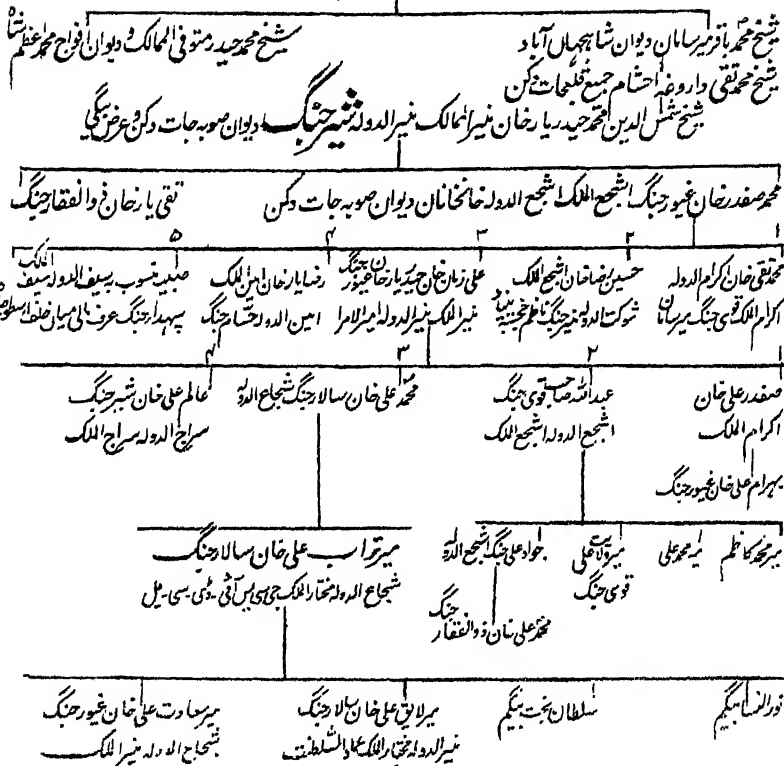 شیخ محمد باقر میر سامان دیوان شاہجہاں آباد
شیخ محمد حیدر متوفی الممالک و دیوان افواج محمد اعظم شاہ
شیخ محمد تقی داروغہ احشام جمیع قلعجات دکن
شیخ شمس الدین محمد حیدر یار خان منیر الممالک منیر الدولہ شیر جنگ دیوان صوبہ جات دکن و عرض بیگی
محمد صفدر خان غیور جنگ اشجع الملک اشجع الدولہ خانخانان دیوان صوبہ جات دکن
تقی یار خان ذوالفقار جنگ
۱
محمد تقی خان اکرام الدولہ
اکرام الملک قوی جنگ میر سامان
۲
حسین رضا خان اشجع الملک
شوکت الدولہ منیر جنگ ناظم خجستہ بنیاد
۳
علی زمان خان حیدر یار خان غیور جنگ
منیر الملک منیر الدولہ امیر الامرا
۴
رضا یار خان امین الملک
امین الدولہ حسام جنگ
۵
صبیہ منسوب بہ سیف الدولہ سیف الملک
سپہدار جنگ عرف مالی میاں خلف ارسطو جاہ
۱
صفدر علی خان
اکرام الملک
بہرام علی خان غیور جنگ
۲
عبد اللہ صاحب قوی جنگ
اشجع الدولہ اشجع الملک
۳
محمد علی خان سالار جنگ شجاع الدولہ
۴
عالم علی خان شیر جنگ
سراج الدولہ سراج الملک
میر محمد کاظم
میر محمد علی
میر ولایت علی
قوی جنگ
جواد علی جنگ اشجع الدولہ
محمد علی خان ذوالفقار جنگ
میر تراب علی خان سالار جنگ
شجاع الدولہ مختار الملک جی سی یس آئی - ڈی - سی - یل
نور النسا بیگم
سلطان بخت بیگم
میر لایق علی خان سالار جنگ
منیر الدولہ مختار الملک عماد السلطنت
میر سعادت علی خان غیور جنگ
شجاع الدولہ منیر الملک